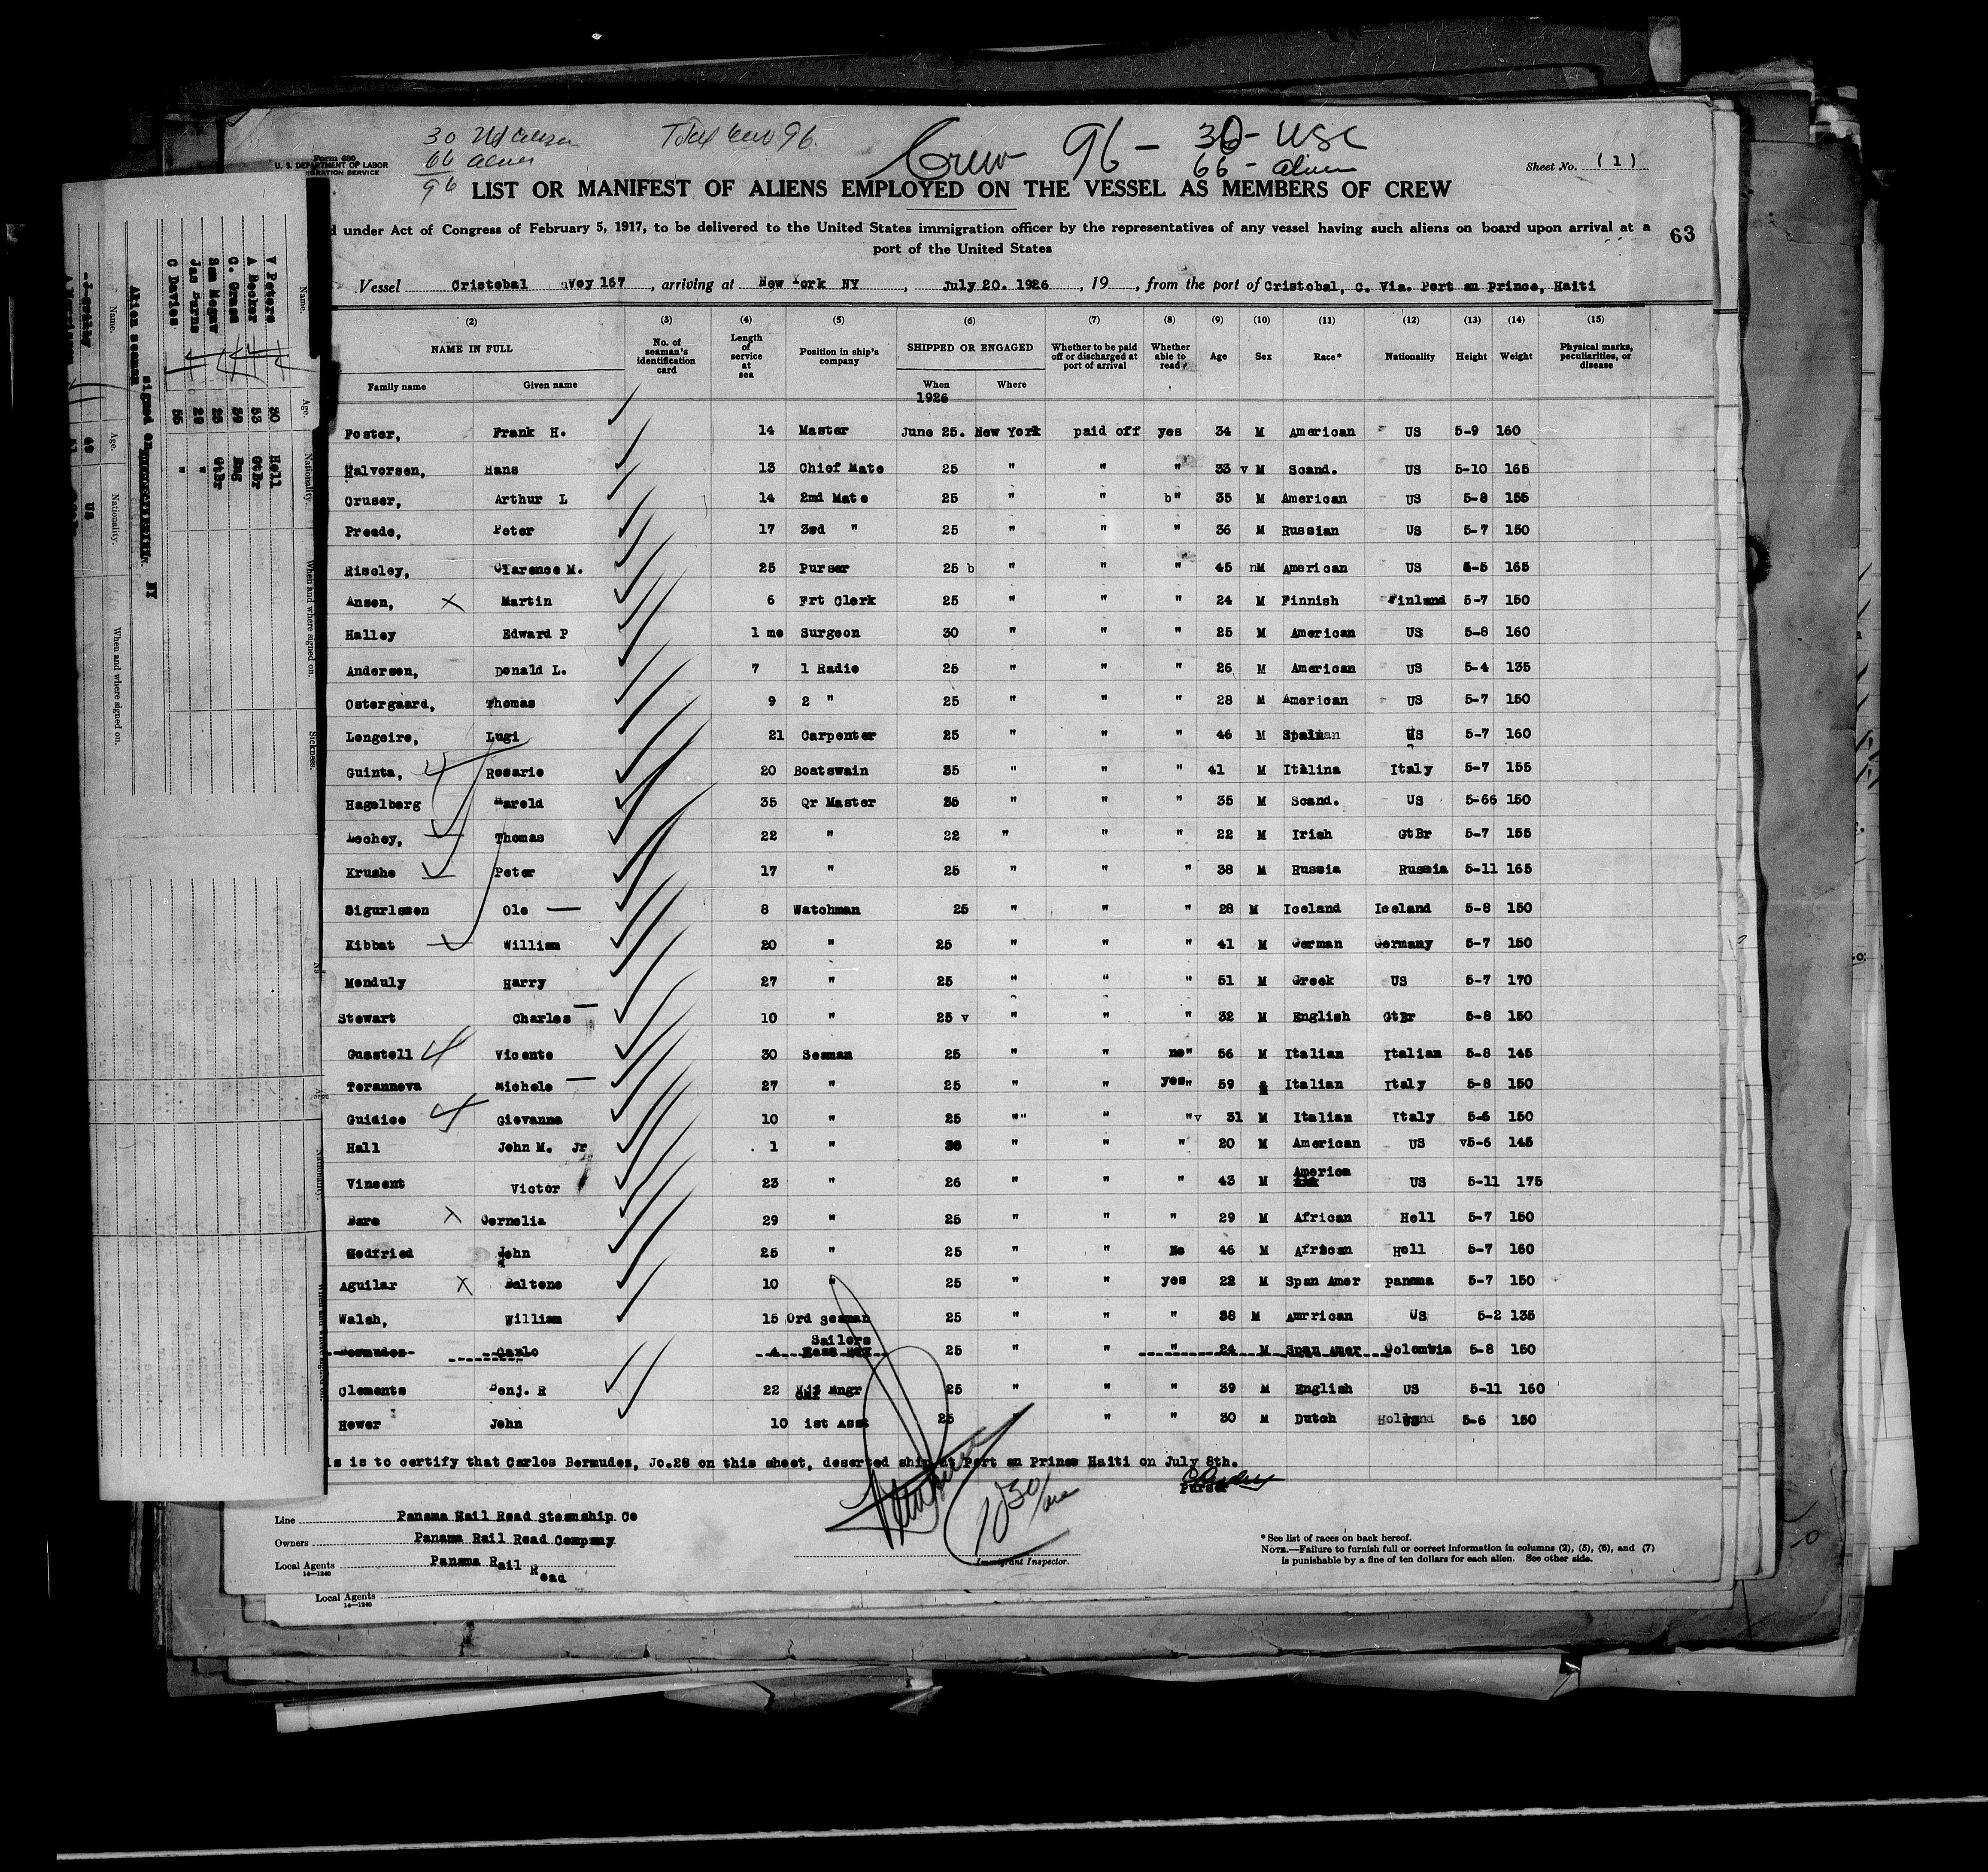 30 US
66 alien
96
Total 96.
Crew 96 - 30 - USC
66 - alien
Form 680
U. S. DEPARTMENT OF LABOR
MIGRATION SERVICE
Sheet No. (1)
LIST OR MANIFEST OF ALIENS EMPLOYED ON THE VESSEL AS MEMBERS OF CREW
d under Act of Congress of February 5, 1917, to be delivered to the United States immigration officer by the representatives of any vessel having such aliens on board upon arrival at a
port of the United States
63
Vessel Cristobal Voy 167, arriving at New York NY, July 20. 1926, 19, from the port of Cristobal, C. Via. Port au prince, Haiti
(2) (3) (4) (5) (6) (7) (8) (9) (10) (11) (12) (13) (14) (15)
NAME IN FULL No. of seaman's identification card Length of service at sea Position in ship's company SHIPPED OR ENGAGED Whether to be paid off or discharged at port of arrival Whether able to read Age Sex Race* Nationality Height Weight Physical marks, peculiarities, or disease
Family name Given name When Where
1926
Foster, Frank H. 14 Master June 25. New York paid off yes 34 M American US 5-9 160
Halvorsen, Hans 13 Chief Mate 25 " " " 33 v M Scand. US 5-10 165
Cruser, Arthur L 14 2nd Mate 25 " " b" 35 M American US 5-8 155
Preede, Peter 17 3rd " 25 " " " 36 M Russian US 5-7 150
Riseley, Clarence M. 25 Purser 25 b " " " 45 nM American US 5-5 165
Ansen, X Martin 6 Frt Clerk 25 " " " 24 M Finnish Finland 5-7 150
Halley Edward P 1 mo Surgeon 30 " " " 25 M American US 5-8 160
Andersen, Donald L. 7 1 Radio 25 " " " 26 M American US 5-4 135
Ostergaard, Thomas 9 2 " 25 " " " 28 M American US 5-7 150
Longeire, Lugi 21 Carpenter 25 " " " 46 M US 5-7 160
Guinta, Rosario 20 Boatswain 35 " " " 41 M Italina Italy 5-7 155
Hagelberg Harold 35 Qr Master 35 " " " 35 M Scand. US 5-66 150
Lochey, Thomas 22 " 22 " " " 22 M Irish GtBr 5-7 155
Krushe Peter 17 " 25 " " " 38 M Russia Russia 5-11 165
Sigurlssen Ole 8 Watchman 25 " " " 28 M Iceland Iceland 5-8 150
Kibbat William 20 " 25 " " " 41 M German Germany 5-7 150
Menduly Harry 27 " 25 " " " 51 M Greek US 5-7 170
Stewart Charles 10 " 25 v " " " 32 M English GtBr 5-8 150
Guastell Vicente 30 Seaman 25 " " no" 56 M Italian Italian 5-8 145
Terannova Michele 27 " 25 " " yes" 59 Italian Italy 5-8 150
Guidice Giovanna 10 " 25 "" " "v 31 M Italian Italy 5-6 150
Hall John M. Jr 1 " " " " 20 M American US v5-6 145
Vinsent Victor 23 " 26 " " " 43 M America US 5-11 175
Bare X Cornelia 29 " 25 " " " 29 M African Holl 5-7 150
Godfried John 25 " 25 " " No 46 M African Holl 5-7 160
Aguilar X Baltone 10 " 25 " " yes 22 M Span Amer panama 5-7 150
Walsh, William 15 Ord seaman 25 " " " 38 M Amrrican US 5-2 135
Bermudes Carlo 4 Sailors Mess Boy 25 " " " 24 M Span Amer Colombia 5-8 150
Clements Benj. R 22 Engr 25 " " " 39 M English US 5-11 160
Hewer John 10 1st Asst 25 " " " 30 M Dutch Holland 5-6 150
is is to certify that Carlos Bermudes, Jo.28 on this sheet, deserted ship at Port au Prince Haiti on July 8th.
Purser
Line Panama Rail Road Steamship Co
Owners Panama Rail Road Company
Local Agents Panama Rail Road
14—1240
Immigrant Inspector.
*See list of races on back hereof.
NOTE.—Failure to furnish full or correct information in columns (2), (5), (6), and (7)
is punishable by a fine of ten dollars for each alien. See other side.
Local Agents
14—1240
Name. Age. Nationality. When and where signed on. Sickness.
V Peters 30 Holl
A Becher 53 GtBr
C. Graca 39 Eng
Sam Mogav 25 GtBr
Jas Burns 28 "
C Davies 55 "
Alien seamen signed on NY
Name. Age. Nationality. When and where signed on.
49 US